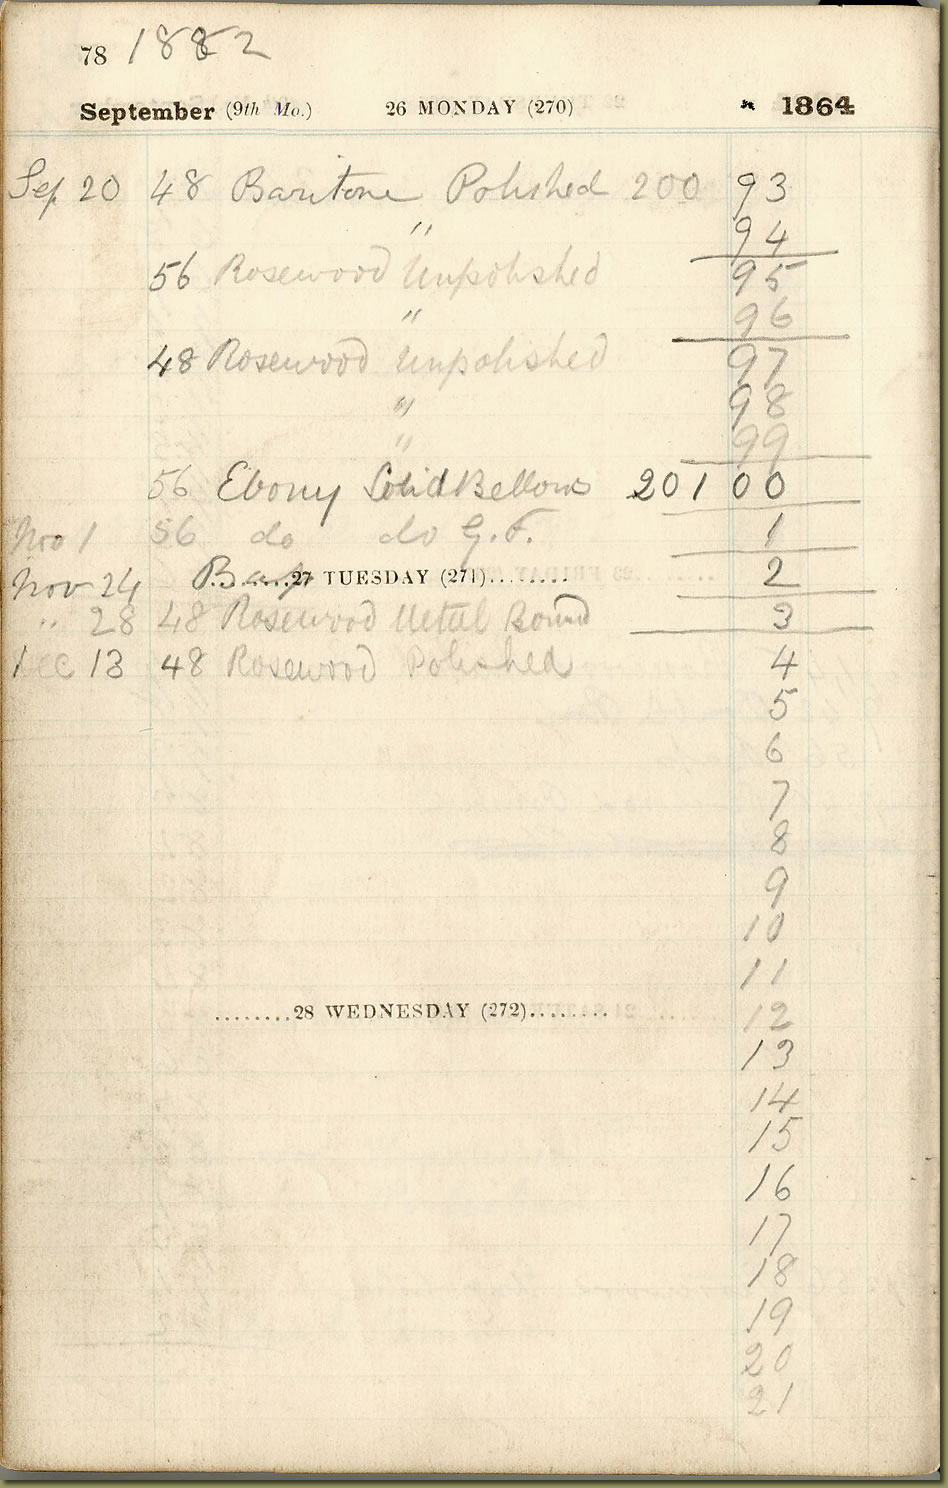 78 1882
September (9th Mo.) 26 MONDAY (270) 1864
Sep 20 48 Baritone Polished 200 93
" 94
56 Rosewood Unpolished 95
" 96
48 Rosewood Unpolished 97
" 98
" 99
56 Ebony Solid Bellows 201 00
Nov 1 56 do do G.F. 1
Nov 24 ........27 TUESDAY (271)......... 2
" 28 48 Rosewood Metal Bound 3
Dec 13 48 Rosewood Polished 4
5
6
7
8
9
10
11
........28 WEDNESDAY (272)......... 12
13
14
15
16
17
18
19
20
21